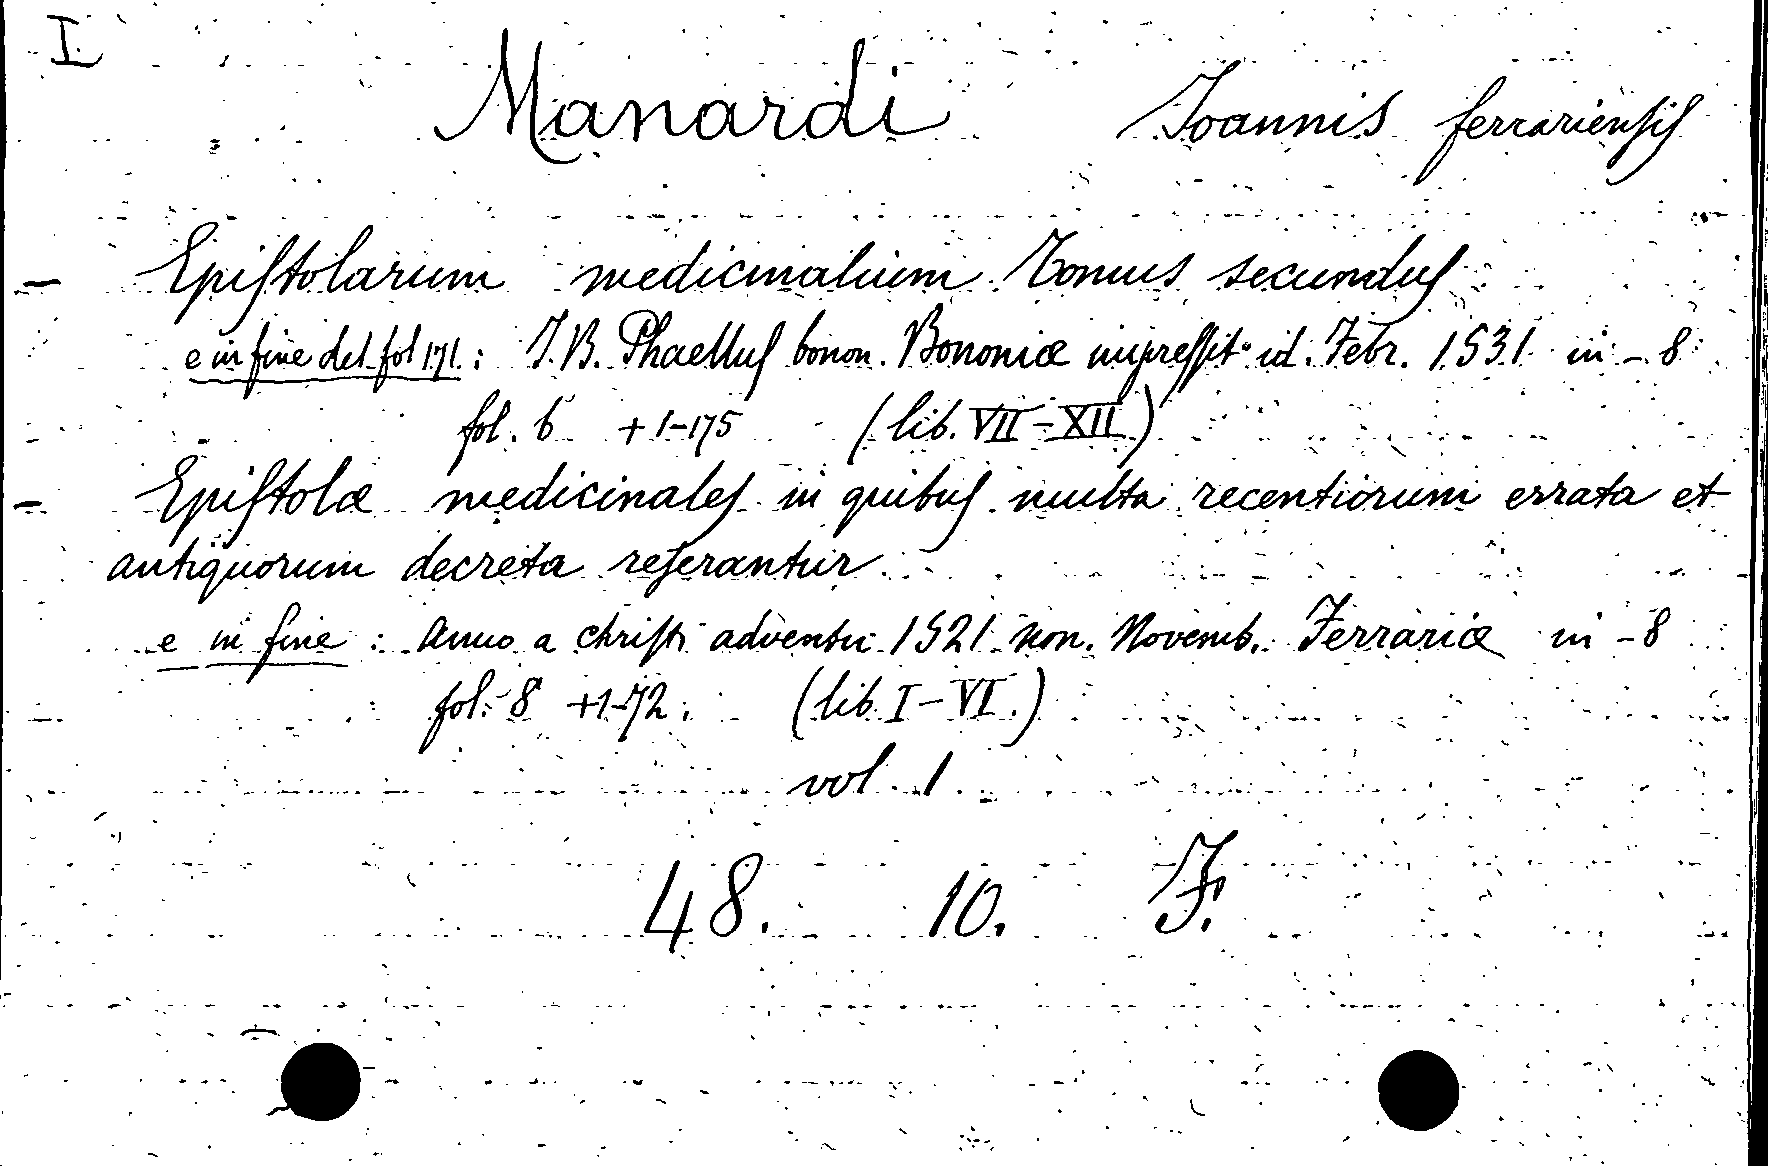 I.
Manardi Ioannis ferrariensis
— Epistolarum medicinalium Tomus secundus
e in fine del fol 171: J. B. Phaellus bonon. Bononiæ impressit id. Febr. 1531 in-8
fol. 6 + 1-175 (lib. VII-XII)
— Epistolæ medicinales in quibus multa recentiorum errata et
antiquorum decreta reserantur
e in fine: anno a christi adventu 1521 non. Novemb. Ferrariæ in-8
fol. 8 +1-72. (lib. I-VI.)
vol. 1.
48. 10. F.